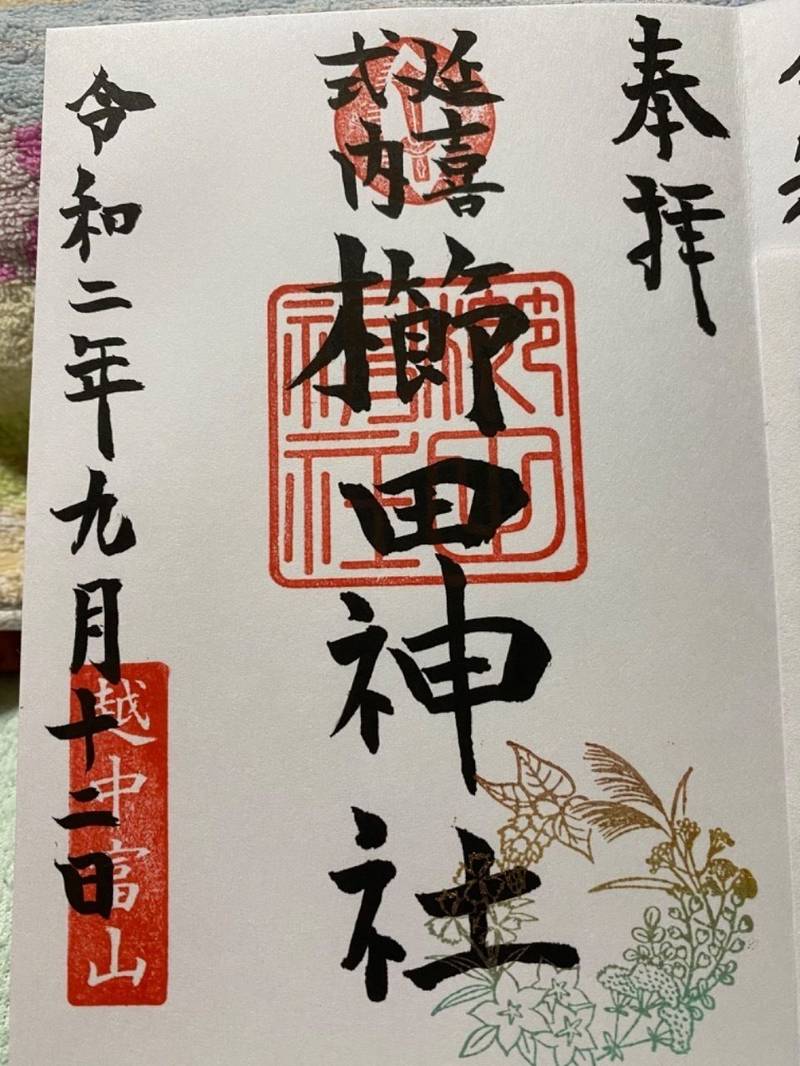 奉拝
延喜
式内
櫛田神社
櫛田
神社
令和二年九月十二日
越中富山